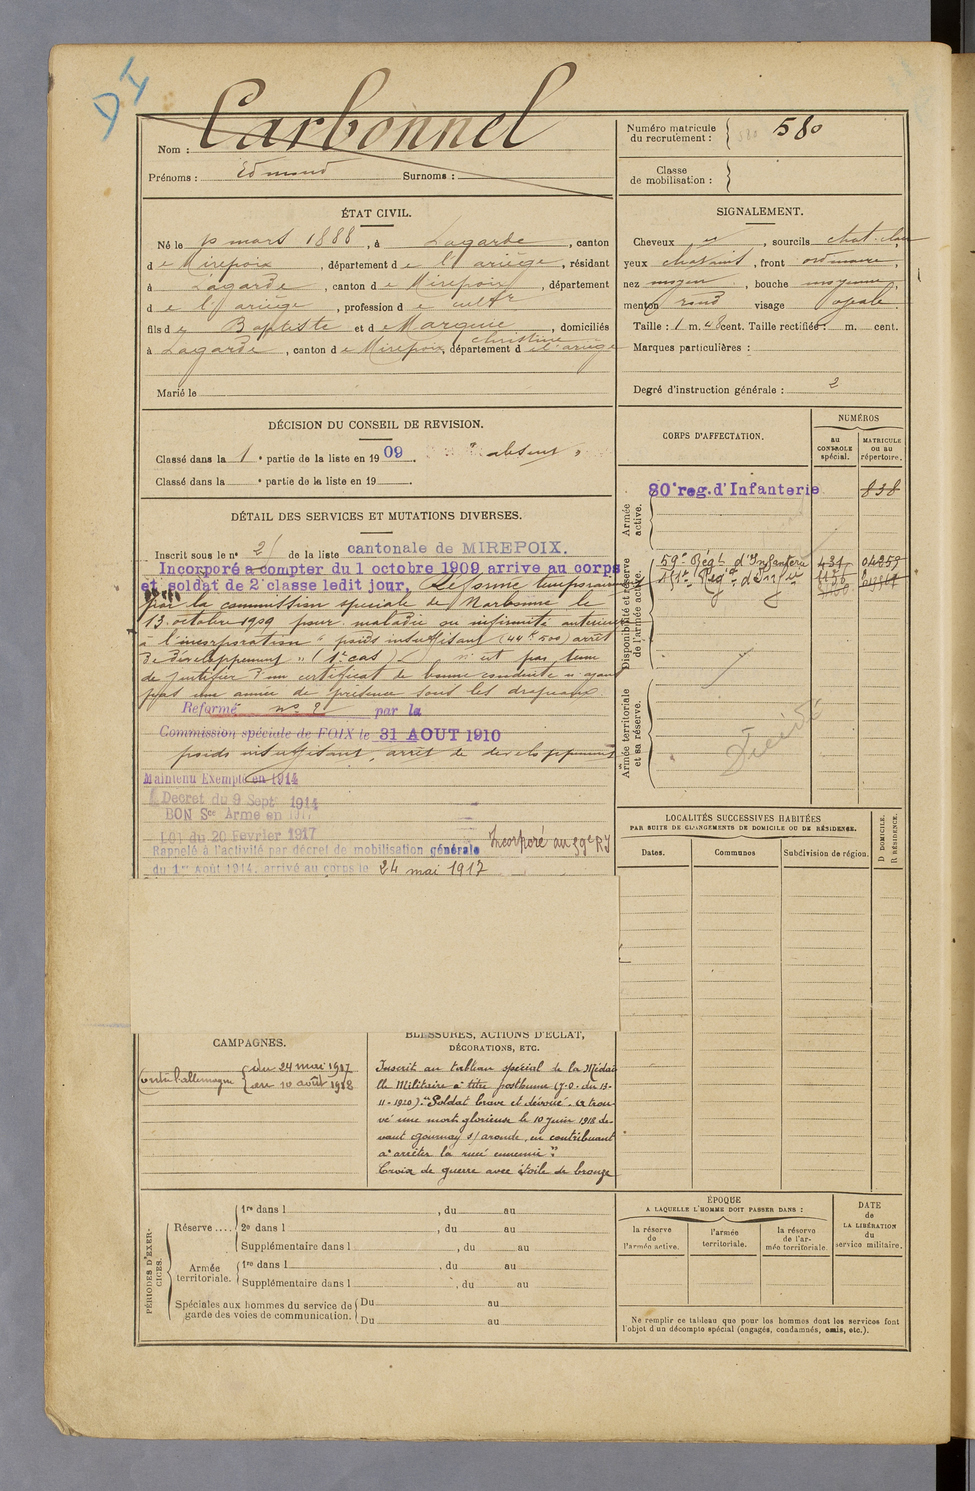 Carbonnel
Nom :
Prénoms : Edmond Surnoms :
Numéro matricule du recrutement : 580
Classe de mobilisation :
ÉTAT CIVIL.
Né le mars 1888, à Lagarde, canton
de Mirepoix, département de l'Ariège, résidant
à Lagarde, canton de Mirepoix, département
de l'Ariège, profession de cultr
fils de Baptiste et de Marquié Christine, domiciliés
à Lagarde, canton de Mirepoix, département de l'ariège
Marié le
SIGNALEMENT.
Cheveux et, sourcils chat. clair
yeux chatains, front ordinaire,
nez moyen, bouche moyenne,
menton rond visage ovale
Taille : 1 m. 48 cent. Taille rectifiée : m. cent.
Marques particulières :
Degré d'instruction générale : 2
DÉCISION DU CONSEIL DE REVISION.
Classé dans la 1e partie de la liste en 1909. absent
Classé dans la e partie de la liste en 19
DÉTAIL DES SERVICES ET MUTATIONS DIVERSES.
Inscrit sous le n° 21 de la liste cantonale de MIREPOIX.
Incorporé à compter du 1 octobre 1909 arrive au corps
et soldat de 2e classe ledit jour. Réformé temporairement
par la commission spéciale de Narbonne le
13 octobre 1909 pour maladie ou infirmité antérieure
à l'incorporation "poids insuffisant (44 k 500) arrêt
de développement" (1er cas) n'est pas tenu
de justifier d'un certificat de bonne conduite n'ayant
pas une année de présence sous les drapeaux.
Réformé n° 2 par la
Commission spéciale de FOIX le 31 AOUT 1910
poids insuffisant, arrêt de développement
Maintenu Exempté en 1914
Décret du 9 Sept 1914
BON Sce Arme en 1917
Loi du 20 Fevrier 1917 Incorporé au 59e RI
Rappelé à l'activité par décret de mobilisation générale
du 1er Août 1914, arrivé au corps le 24 mai 1917
CORPS D'AFFECTATION.
NUMÉROS
au CONTROLE spécial.
MATRICULE ou au répertoire.
Armée active.
80e reg. d'Infanterie 838
Disponibilité et réserve de l'armée active.
59e Régt d'Infanterie 431 04259
Régt d'Infie
Armée territoriale et sa réserve.
Décédé
LOCALITÉS SUCCESSIVES HABITÉES
PAR SUITE DE CHANGEMENTS DE DOMICILE OU DE RÉSIDENCE.
Dates. Communes Subdivision de région. D DOMICILE. R RÉSIDENCE.
CAMPAGNES.
Contre l'allemagne du 24 mai 1917
au 10 août 1918
BLESSURES, ACTIONS D'ÉCLAT,
DÉCORATIONS, ETC.
Inscrit au tableau spécial de la Médai
lle Militaire à titre posthume (J.O. du 13-
11-1920) : "Soldat brave et dévoué. A trou-
vé une mort glorieuse le 10 juin 1918 de-
vant Gournay s/ aronde, en contribuant
à arrêter la ruée ennemie".
Croix de guerre avec étoile de bronze
PÉRIODES D'EXERCICES.
Réserve ....
1re dans l , du au
2e dans l , du au
Supplémentaire dans l , du au
Armée territoriale.
1re dans l , du au
Supplémentaire dans l , du au
Spéciales aux hommes du service de garde des voies de communication.
Du au
Du au
ÉPOQUE
A LAQUELLE L'HOMME DOIT PASSER DANS :
la réserve de l'armée active.
l'armée territoriale.
la réserve de l'armée territoriale.
DATE de LA LIBÉRATION du service militaire.
Ne remplir ce tableau que pour les hommes dont les services font
l'objet d'un décompte spécial (engagés, condamnés, omis, etc.).